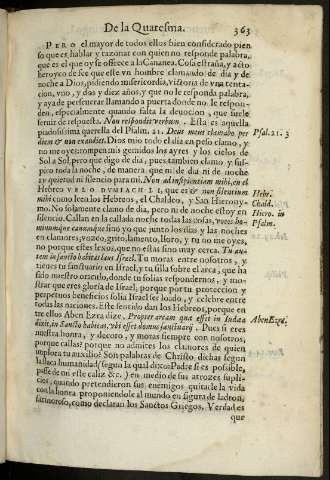 De la Quaresma.
363
PERO el mayor de todos ellos bien considerado pien
so que es hablar y razonar con quien no responde palabra,
que es el que oy se ofrece a la Cananea. Cosa estraña, y acto
heroyco de fee que este vn hombre clamando de dia y de
noche a Dios, pidiendo misericordia, victoria de vna tenta-
cion, vno, y dos y diez años, y que no le responda palabra,
y aya de perseuerar llamando a puerta donde no le respon-
den, especialmente quando falta la deuocion, que suele
seruir de respuesta. Non respondit verbum. Esta es aquella
piadosissima querella del Psalm. 21. Deus meus clamabo per
Psal. 21. 3
diem & non exaudies. Dios mio todo el dia en peso clamo, y
no me oyes: rompen mis gemidos los ayres y los cielos de
Sol a Sol, pero que digo de dia, pues tambien clamo y sus-
piro toda la noche, de manera que ni de dia ni de noche
ay quietud ni silencio para mi. Non ad insipientiam mihi, en el
Hebreo VELO DVMIACH LI, que es & non silentium
Hebr.
mihi como leen los Hebreos, el Chaldeo, y San Hierony-
Chald.
mo. No solamente clamo de dia, pero ni de noche estoy en
Hiero. in
silencio. Callan en la callada noche todas las cosas, voces ho-
Psalm.
minumque canumque sino yo que junto los dias y las noches
en clamores, vozeo, grito, lamento, lloro, y tu no me oyes,
no porque estes lexos, que no estas sino muy cerca. Tu au-
tem in sancto habitas laus Israel. Tu moras entre nosotros, y
tienes tu santuario en Israel, y tu silla sobre el arca, que ha
sido nuestro oraculo, donde tu solias respondernos, y mo-
strar que eres gloria de Israel, porque por tu proteccion y
perpetuos beneficios solia Israel ser loado, y celebre entre
todas las naciones. Este sentido dan los Hebreos, porque en
tre ellos Aben Ezra dize, Propter arcam quæ esset in Iudæa
Aben Ezra.
dixit, in sancto habitas, vbi esset domus sanctuarij. Pues si eres
nuestra honra, y decoro, y moras siempre con nosotros,
porque callas? porque no admites los clamores de quien
implora tu auxilio? Son palabras de Christo dichas segun
la flaca humanidad (segun la qual dixo: Padre si es possible,
passe de mi este caliz &c.) en medio de sus atrozes supli-
cios, quando pretendieron sus enemigos quitarle la vida
con la honra proponiendole al mundo en figura de ladron,
facinoroso, como declaran los Sanctos Griegos. Verdad es
que